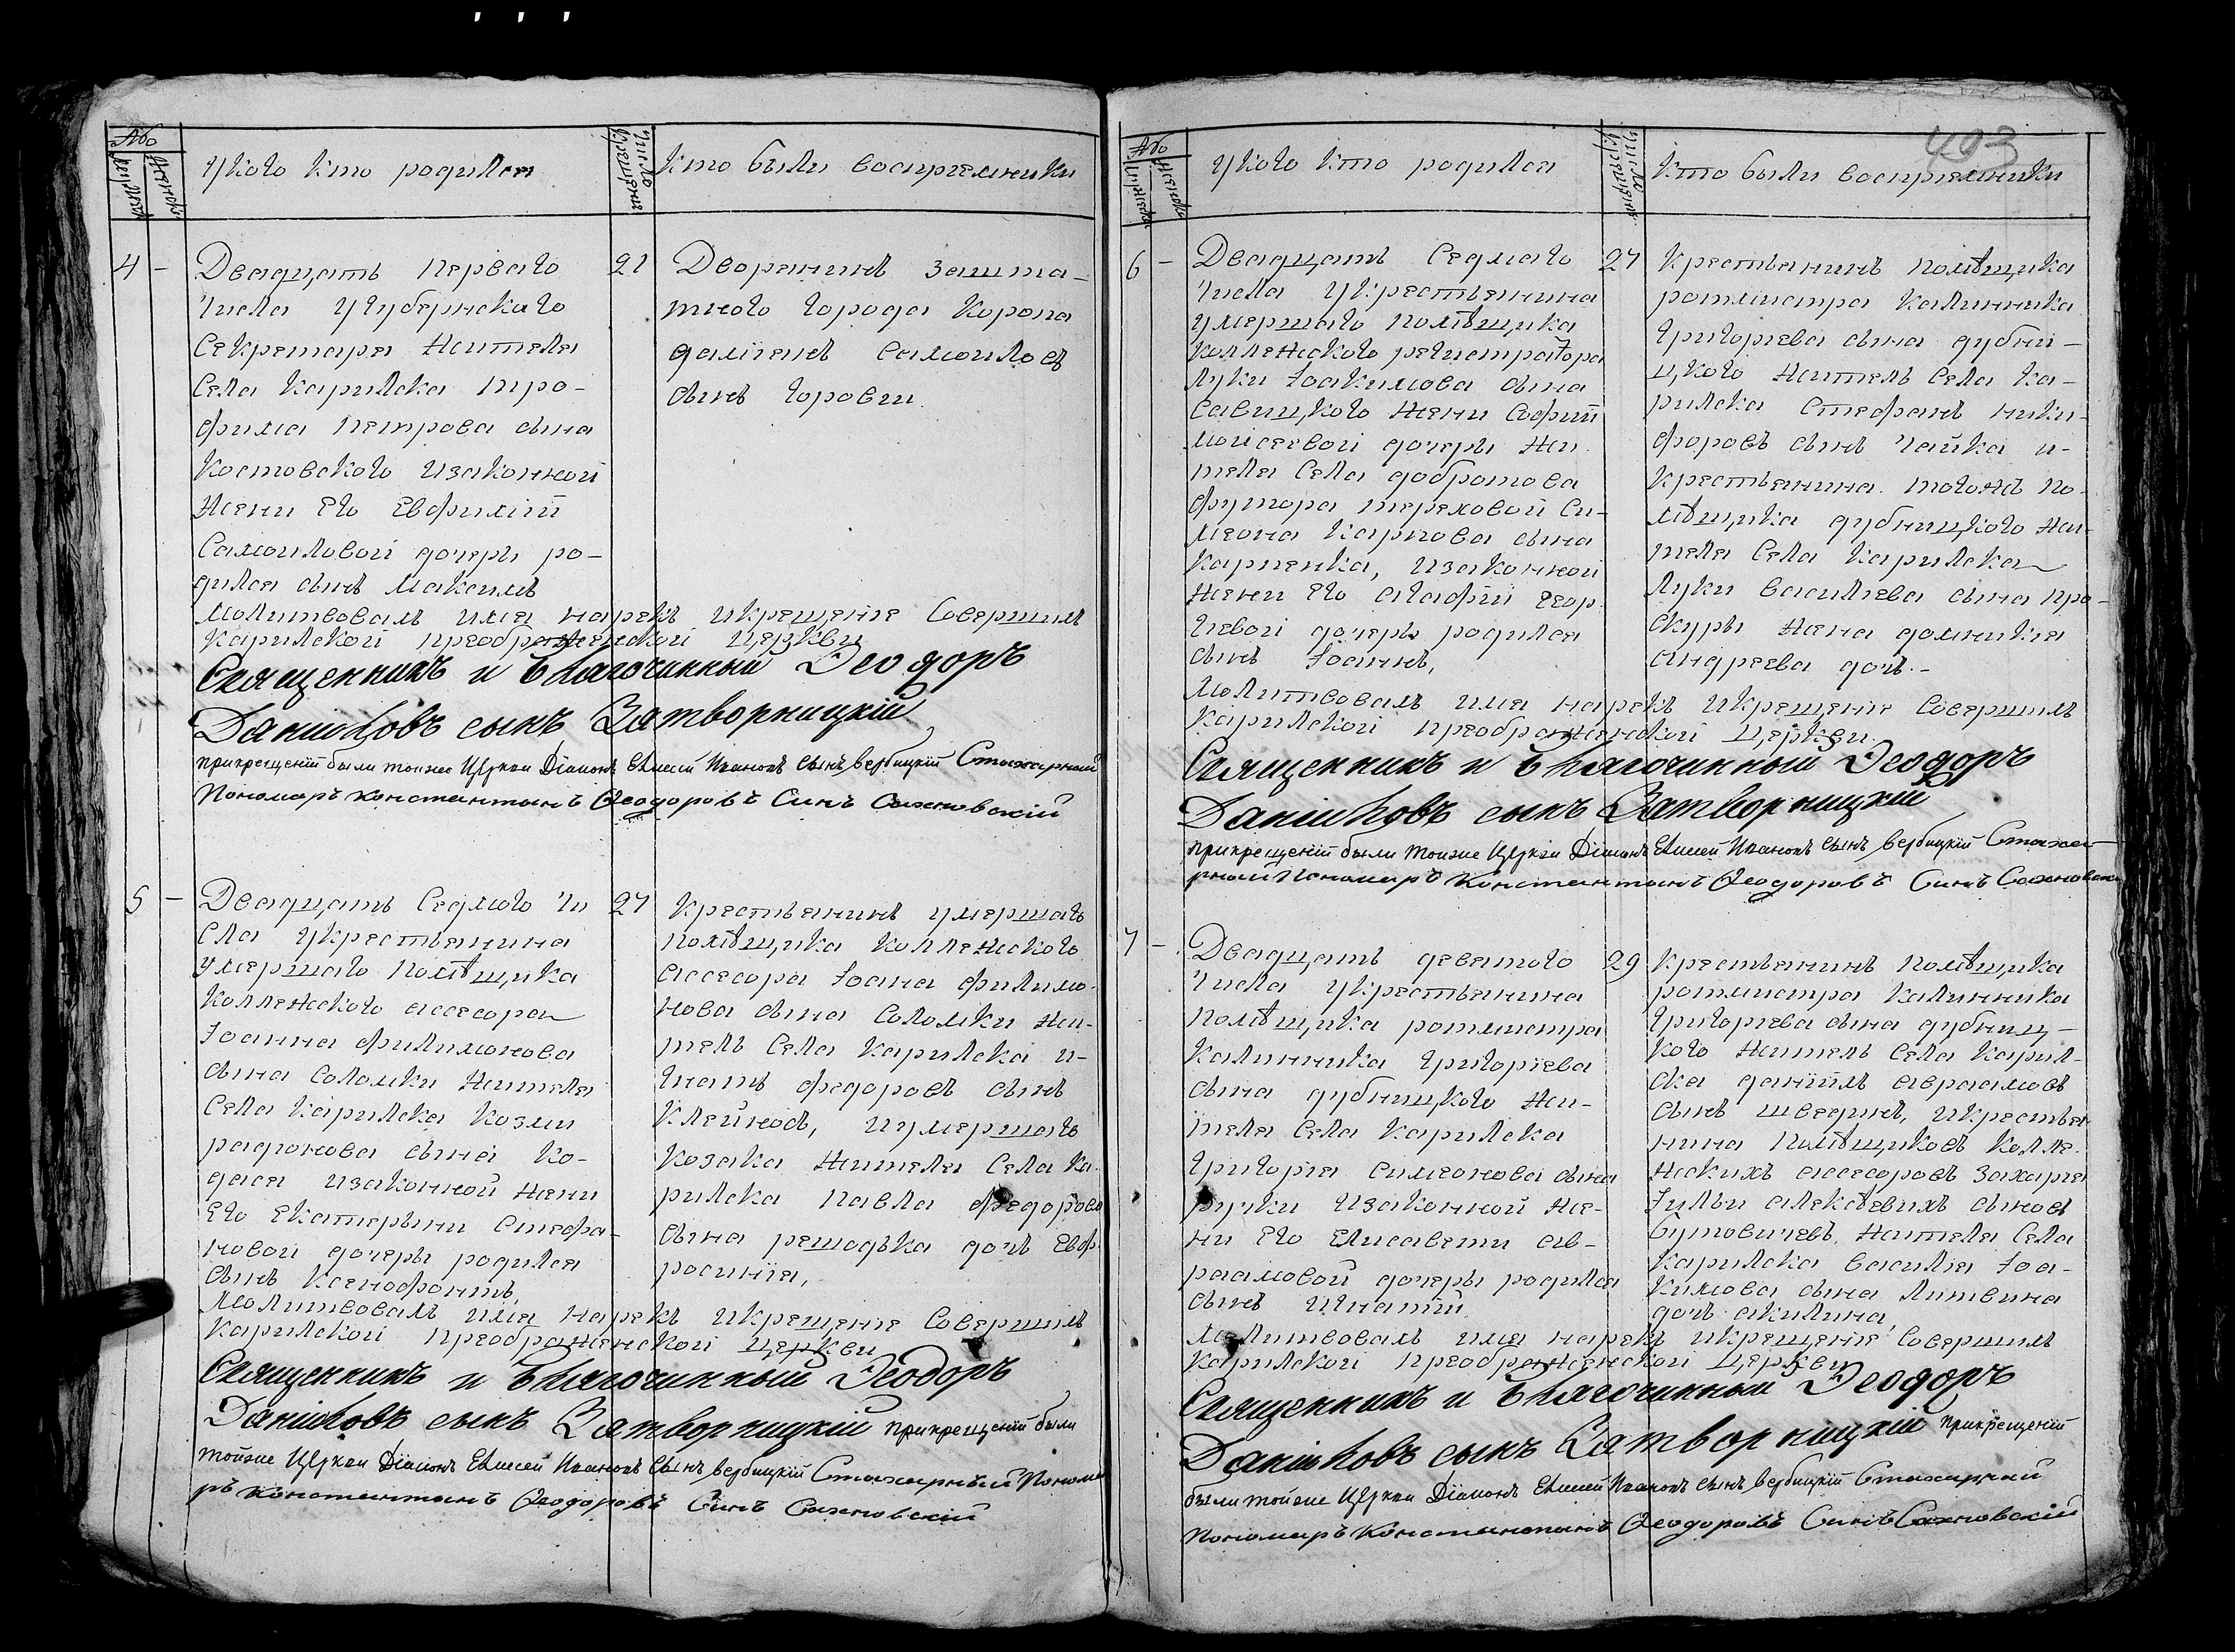 №
мужеска
женска
У кого кто родился
Число крещения
Кто были восприемники
4 -
Двадцать перваго
числа у губернскаго
секретаря жителя
села Карилска Тро-
фима Петрова сына
Костовского изаконной
жены его Евфимїи
Самоиловой дочеры ро-
дился сынъ Максимъ
21
Дворянинъ зашта-
тного города Коропа
Дамїянъ Самоиловъ
сынъ Горовыи
Молитвовалъ имя нарекъ икрещение совершилъ
Карилской Преображенской церкви
Священникъ и Благочинный Ѳеодоръ
Данииловъ сынъ Затворницкїй
прикрещенїи были тоиже Церкви Дїаконъ Елисей Ивановъ сынъ Вербицкїй Стихарный
Пономаръ Константинъ Ѳеодоровъ Синъ Сахновскїй
5 -
Двадцать седмого чи
сла укрестьянина
умершаго помѣщика
коллежского ассесора
Іоанна Филимонова
сына Соломки жителя
села Карилска Козмы
сына Ко-
изаконной жены
его Екатерыны Стефа-
новой дочеры родился
сынъ Ксенофонтъ,
27
Крестьянинъ умершаго
помѣщика коллежского
ассесора Іоана Филимо-
нова сына Соломки жи-
тель села Карилска И-
гнатъ Федоровъ сынъ
Клейнось, иумершаго
козака жителя села Ка-
рилска Павла Федорова
сына решодка дочь Евф-
росинїя,
Молитвовалъ имя нарекъ икрещение совершилъ
Карилской Преображенской церкви
Священникъ и Благочинный Ѳеодоръ
Данииловъ сынъ Затворницкїй прикрещенїи были
тойже Церкви Дїаконъ Елисей Ивановъ сынъ Вербицкїй Стихарный Понома
ръ Константинъ Ѳеодоровъ Синъ Сахновскїй
493
№
мужеска
женска
У кого кто родился
Число крещения
Кто были восприемники
6 -
Двадцать седмаго
числа укрестьянина
умершаго помѣщика
коллежского регистратора
Луки Іоакимова сына
Савицкого жены Софїи
Моисеевой дочеры жи-
теля села Добротова
футора Тереховой Си-
меона Карпова сына
Карпенка, изаконной
жены его Агафїи Геор-
гиевой дочеры родился
сынъ Іоаннъ,
27
Крестьянинъ помѣщика
ротмистра Калинника
Григорьева сына Дубни-
цкого житель села Ка-
рилска Стефанъ Ники-
форовъ сынъ Чайка и-
крестьянина тогожъ по-
мѣщика Дубницкого жи-
теля села Карилска
Луки Василиева сына Про-
скуры жена Домникия
Андреева дочь.-
Молитвовалъ имя нарекъ икрещение совершилъ
Карилской Преображенской церкви
Священникъ и Благочинный Ѳеодоръ
Данииловъ сынъ Затворницкїй
прикрещенїи были тоиже Церкви Дїаконъ Елисей Ивановъ сынъ Вербицкїй Стиха-
рный Пономаръ Константинъ Ѳеодоровъ Синъ Сахновски
7 -
Двадцать девятого
числа укрестьянина
помѣщика ротмистра
Калинника Григорїева
сына Дубницкого жи-
теля села Карилска
Григорїя Симеонова сына
изаконной же-
ны его Елисаветы Ав-
раамовой дочеры родился
сынъ Игнатїй
29
Крестьянинъ помѣщика
ротмистра Калинника
Григорїева сына Дубниц-
кого житель села Карил-
ска Данїилъ Авраамовъ
сынъ Шведунъ, икрестья-
нина помѣщиковъ колле-
жскихъ ассесоровъ Захария
Іулїи Алексѣевихъ синовъ
Бутовичевъ, жителя села
Карилска Василия Іоа-
кимова сына Литвина
дочь Акилина,
Молитвовалъ имя нарекъ икрещение совершилъ
Карилской Преображенской церкви
Священникъ и Благочинный Ѳеодоръ
Данииловъ сынъ Затворницкїй прикрещенїи
были тойже Церкви Дїаконъ Елисей Ивановъ сынъ Вербицкїй Стихарный
Пономаръ Константинъ Ѳеодоровъ Синъ Сахновскїй